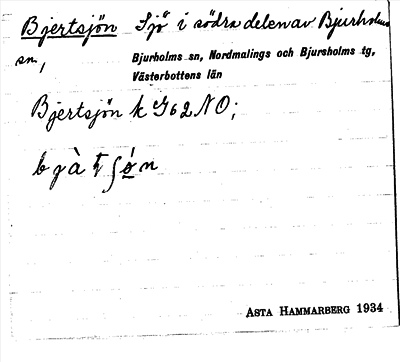 Bjertsjön Sjö i södra delen av Bjurholms
sn,
Bjurholms sn, Nordmalings och Bjursholms tg,
Västerbottens län
Bjertsjön k G62 NO;
ASTA HAMMARBERG 1934